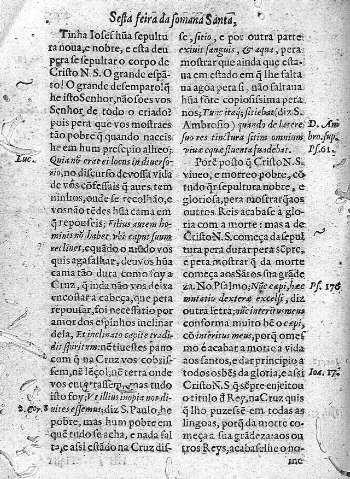 Sesta feira da somana Santa,
Tinha Iosef hũa sepultu
ra noua, e nobre, e esta deu
pera se sepultar o corpo de
Cristo N. S. O grande espã
to! O grande desemparo! q̃
he isto Senhor, não soes vos
Senhor de todo o criado?
pois pera que vos mostraes
tão pobre q̃ quando naceis
he em presepio alheo;
Quia nõ erat ei locus in diuerso
rio, no discurso de vossa vida
de vos cõfessais q̃ aues tem
ninhos, onde se recolhão, e
vos não tẽdes hũa cama em
q̃ repouseis; Filius autem ho
minis nõ habet vbi caput suum
reclinet, e quãdo o mũdo vos
quis agasalhar, deuvos hũa
cama tão dura como foy a
Cruz, q̃ inda não vos deixa
encostar a cabeça, que pera
repousar, foi necessario por
amor dos espinhos inclinar
dela, Et inclinato capite tradi
dit spiritum: nẽ tiuestes pano
com q̃ na Cruz vos cobris
sem, nẽ lẽçol; nẽ terra onde
vos mas tudo
isto foy; Vt illius inopia nos di
uites essemus; diz S. Paulo, he
pobre, mas hum pobre em
que tudo se acha, e nada fal
ta, e assi estando na Cruz dis-
Luc.
2. Cor. 8.
se, sitio, e por outra parte
exiuit sanguis, & aqua, pera
mostrar que ainda que esta
ua em estado em q̃ lhe falta
ua agoa pera si, não faltana
hũa fõte copiosissima pera
nos; Tunc itaq; sitiebat (diz S.
Ambrosio) quando de latere
suo res tinctura sitim omnium
viuæ que fluenta fuadebat.
Porẽ posto q̃ Cristo N. S.
viueo, e morreo pobre, cõ
tudo q̃r sepultura nobre, e
gloriosa, pera mostrar q̃ aos
outros Reis acabase a glo
ria com a morte: mas a de
Cristo N. S. começa da sepul
tura pera durar pera sẽpre,
e pera mostrar q̃ da morte
começa aos Sãtos sua grãde
za. No Psalmo; Nũc cæpi, hæc
mutatio dexteræ excelsi, diz
outra letra; nũc interitus meus
conforma muito bẽ o cæpi,
cõ interitus meus, porq̃ o mes
mo e acabar a morte a vida
aos santos, e dar principio a
todos os bẽs da gloria, e assi
Cristo N. S. q̃ sẽpre enjeitou
o titulo d̃ Rey, na Cruz quis
q̃ lho puzessẽ em todas as
lingoas, porq̃ da morte co
meça a sua grãdeza: aos ou
tros Reys, acabaselhe o no-
me
D. Am
bro. sup.
Ps. 61.
Ps. 176.
Ioa. 17.